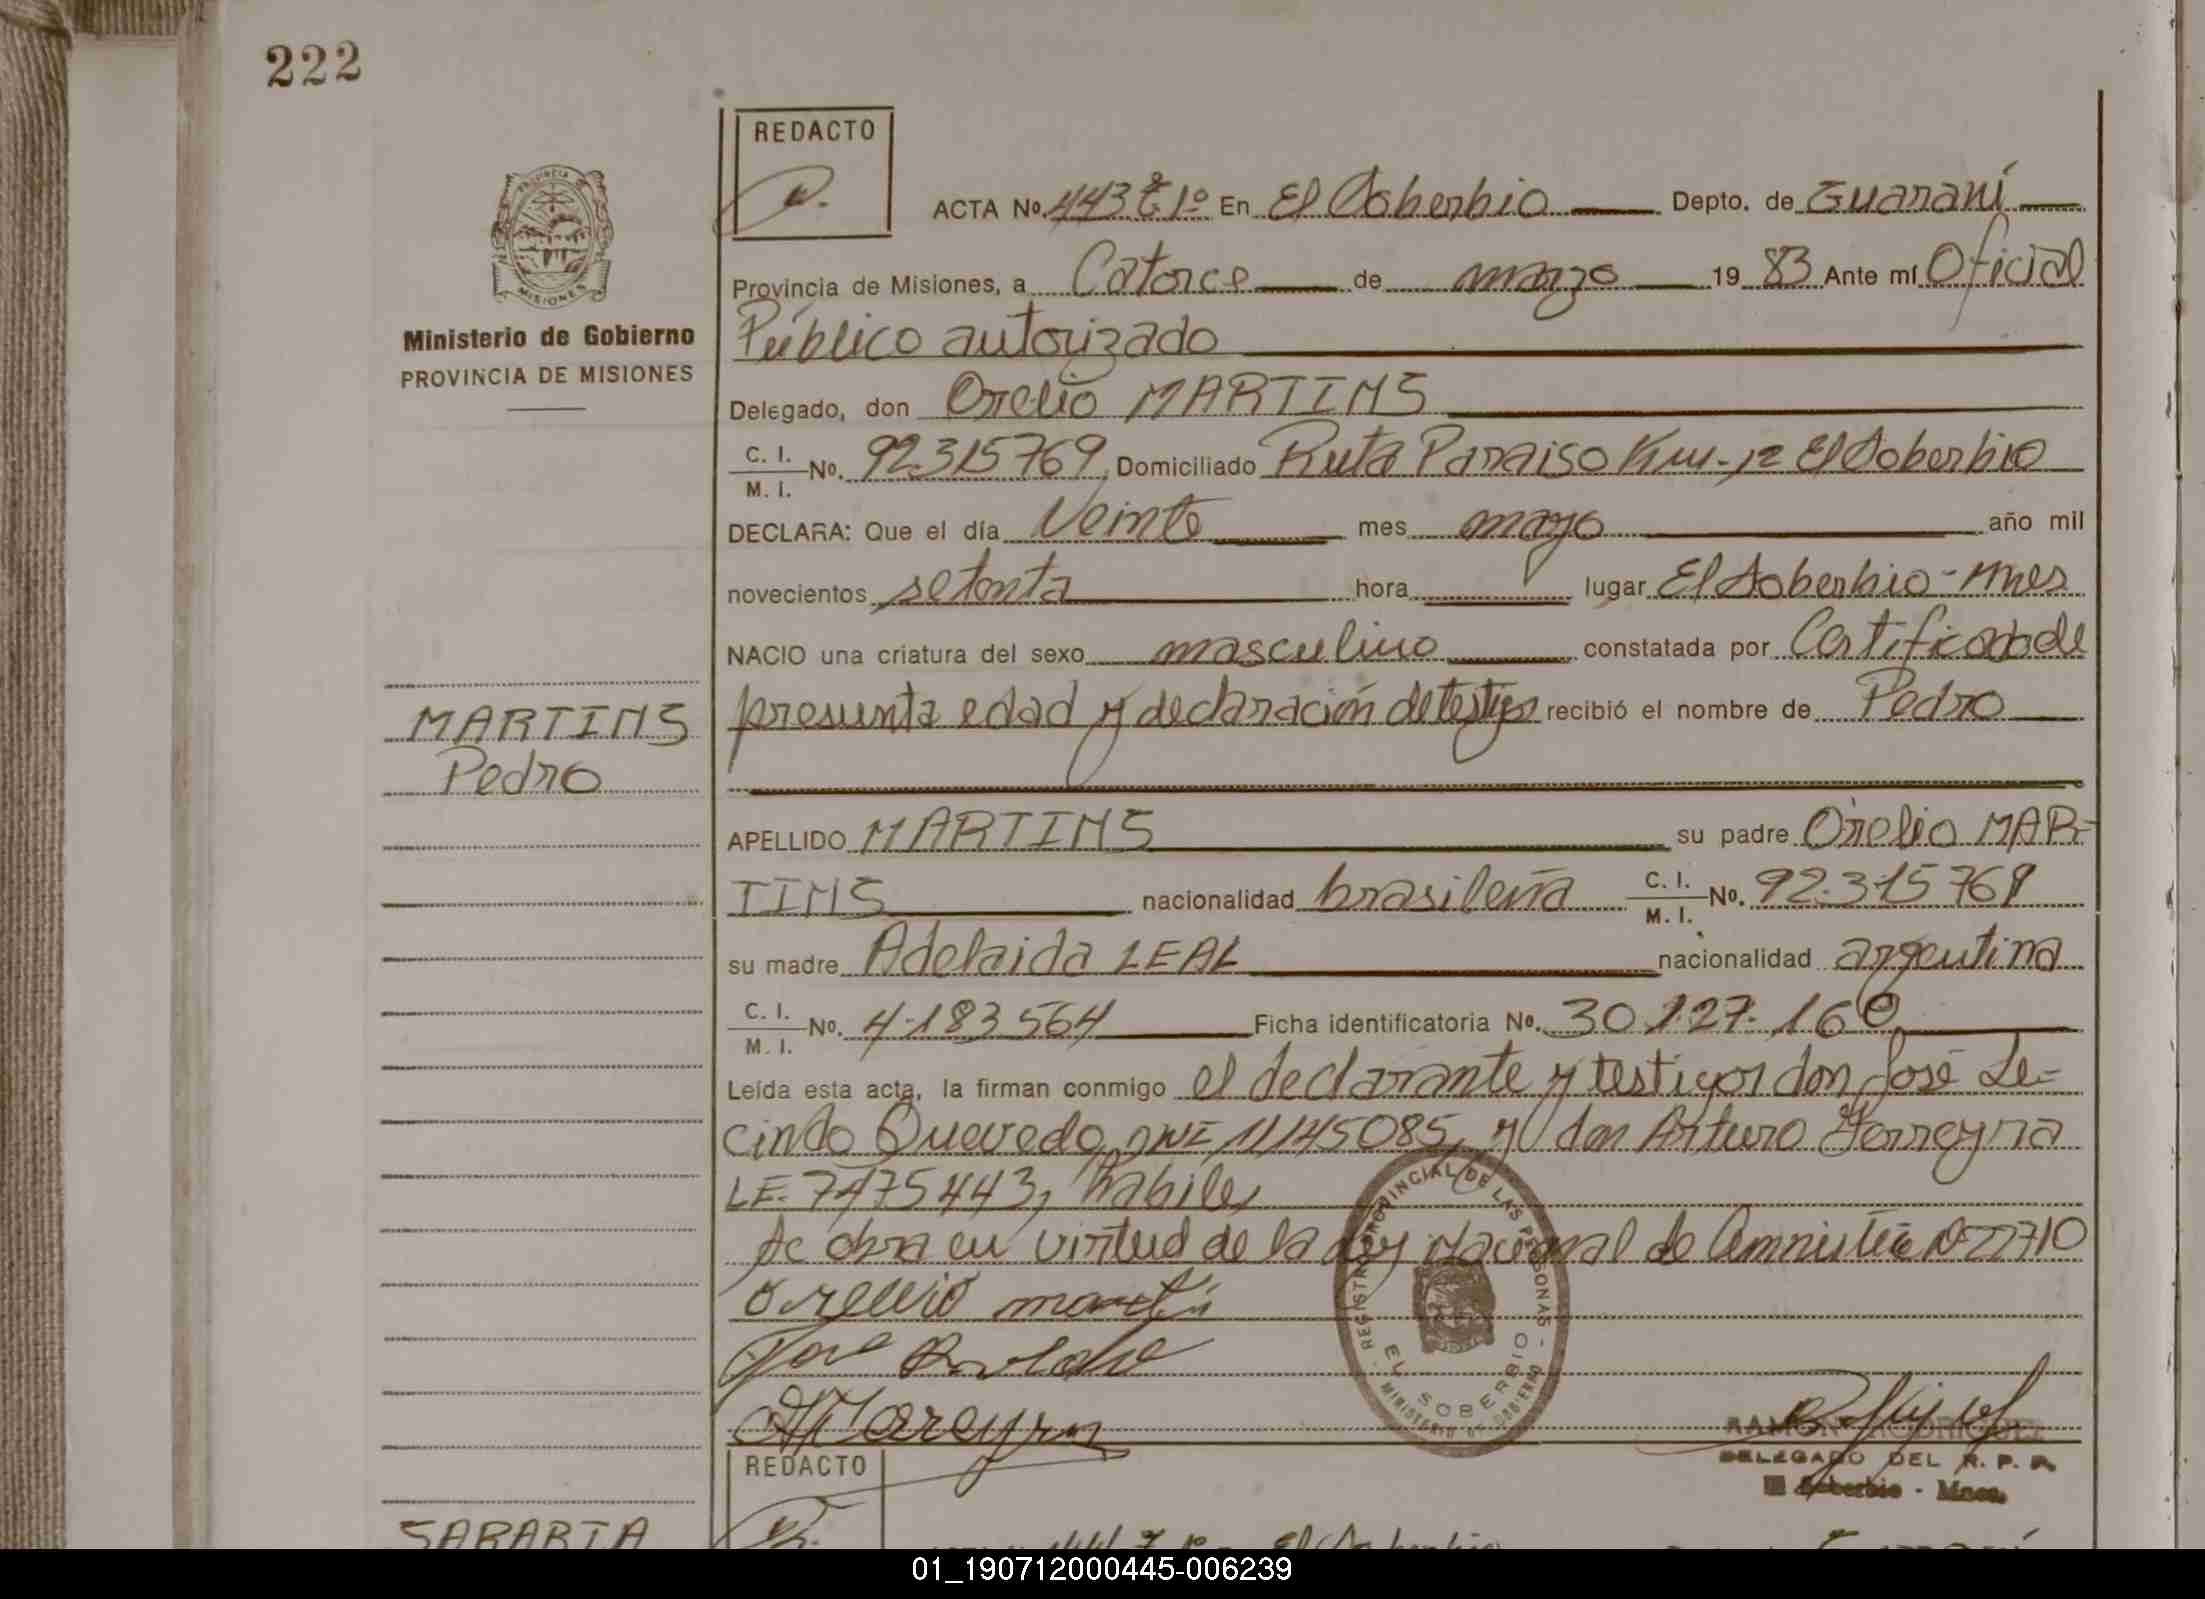 222
REDACTO
ACTA No. 443 Tº 1º En El Soberbio Depto. de Guaraní
PROVINCIA DE
MISIONES
Ministerio de Gobierno
PROVINCIA DE MISIONES
Provincia de Misiones, a Catorce de marzo 19 83 Ante mí Oficial
Público autorizado
Delegado, don Orelio MARTINS
C. I. / M. I. No. 92.315769, Domiciliado Ruta Paraiso Km-12 El Soberbio
DECLARA: Que el día Veinte mes mayo año mil
novecientos setenta hora lugar El Soberbio-Mnes
NACIO una criatura del sexo masculino constatada por Certificado de
presunta edad y declaración de testigos recibió el nombre de Pedro
MARTINS
Pedro
APELLIDO MARTINS su padre Orelio MAR-
TINS nacionalidad brasileña C. I. / M. I. No. 92.315769
su madre Adelaida LEAL nacionalidad argentina
C. I. / M. I. No. 4.183564 Ficha identificatoria No. 30.127.160
Leída esta acta, la firman conmigo el declarante y testigos don José Le-
cindo Quevedo, DNI 11145085, y don Arturo Ferreyra
LE. 7475443, habiles
Se obra en virtud de la Ley Nacional de Amnistia Nº 22710
Orelio martin
REGISTRO PROVINCIAL DE LAS PERSONAS
EL SOBERBIO
MINISTERIO DE GOBIERNO
RAMON RODRIGUEZ
DELEGADO DEL R. P. P.
El Soberbio - Mnes.
REDACTO
SARABIA
El Soberbio
01_190712000445-006239